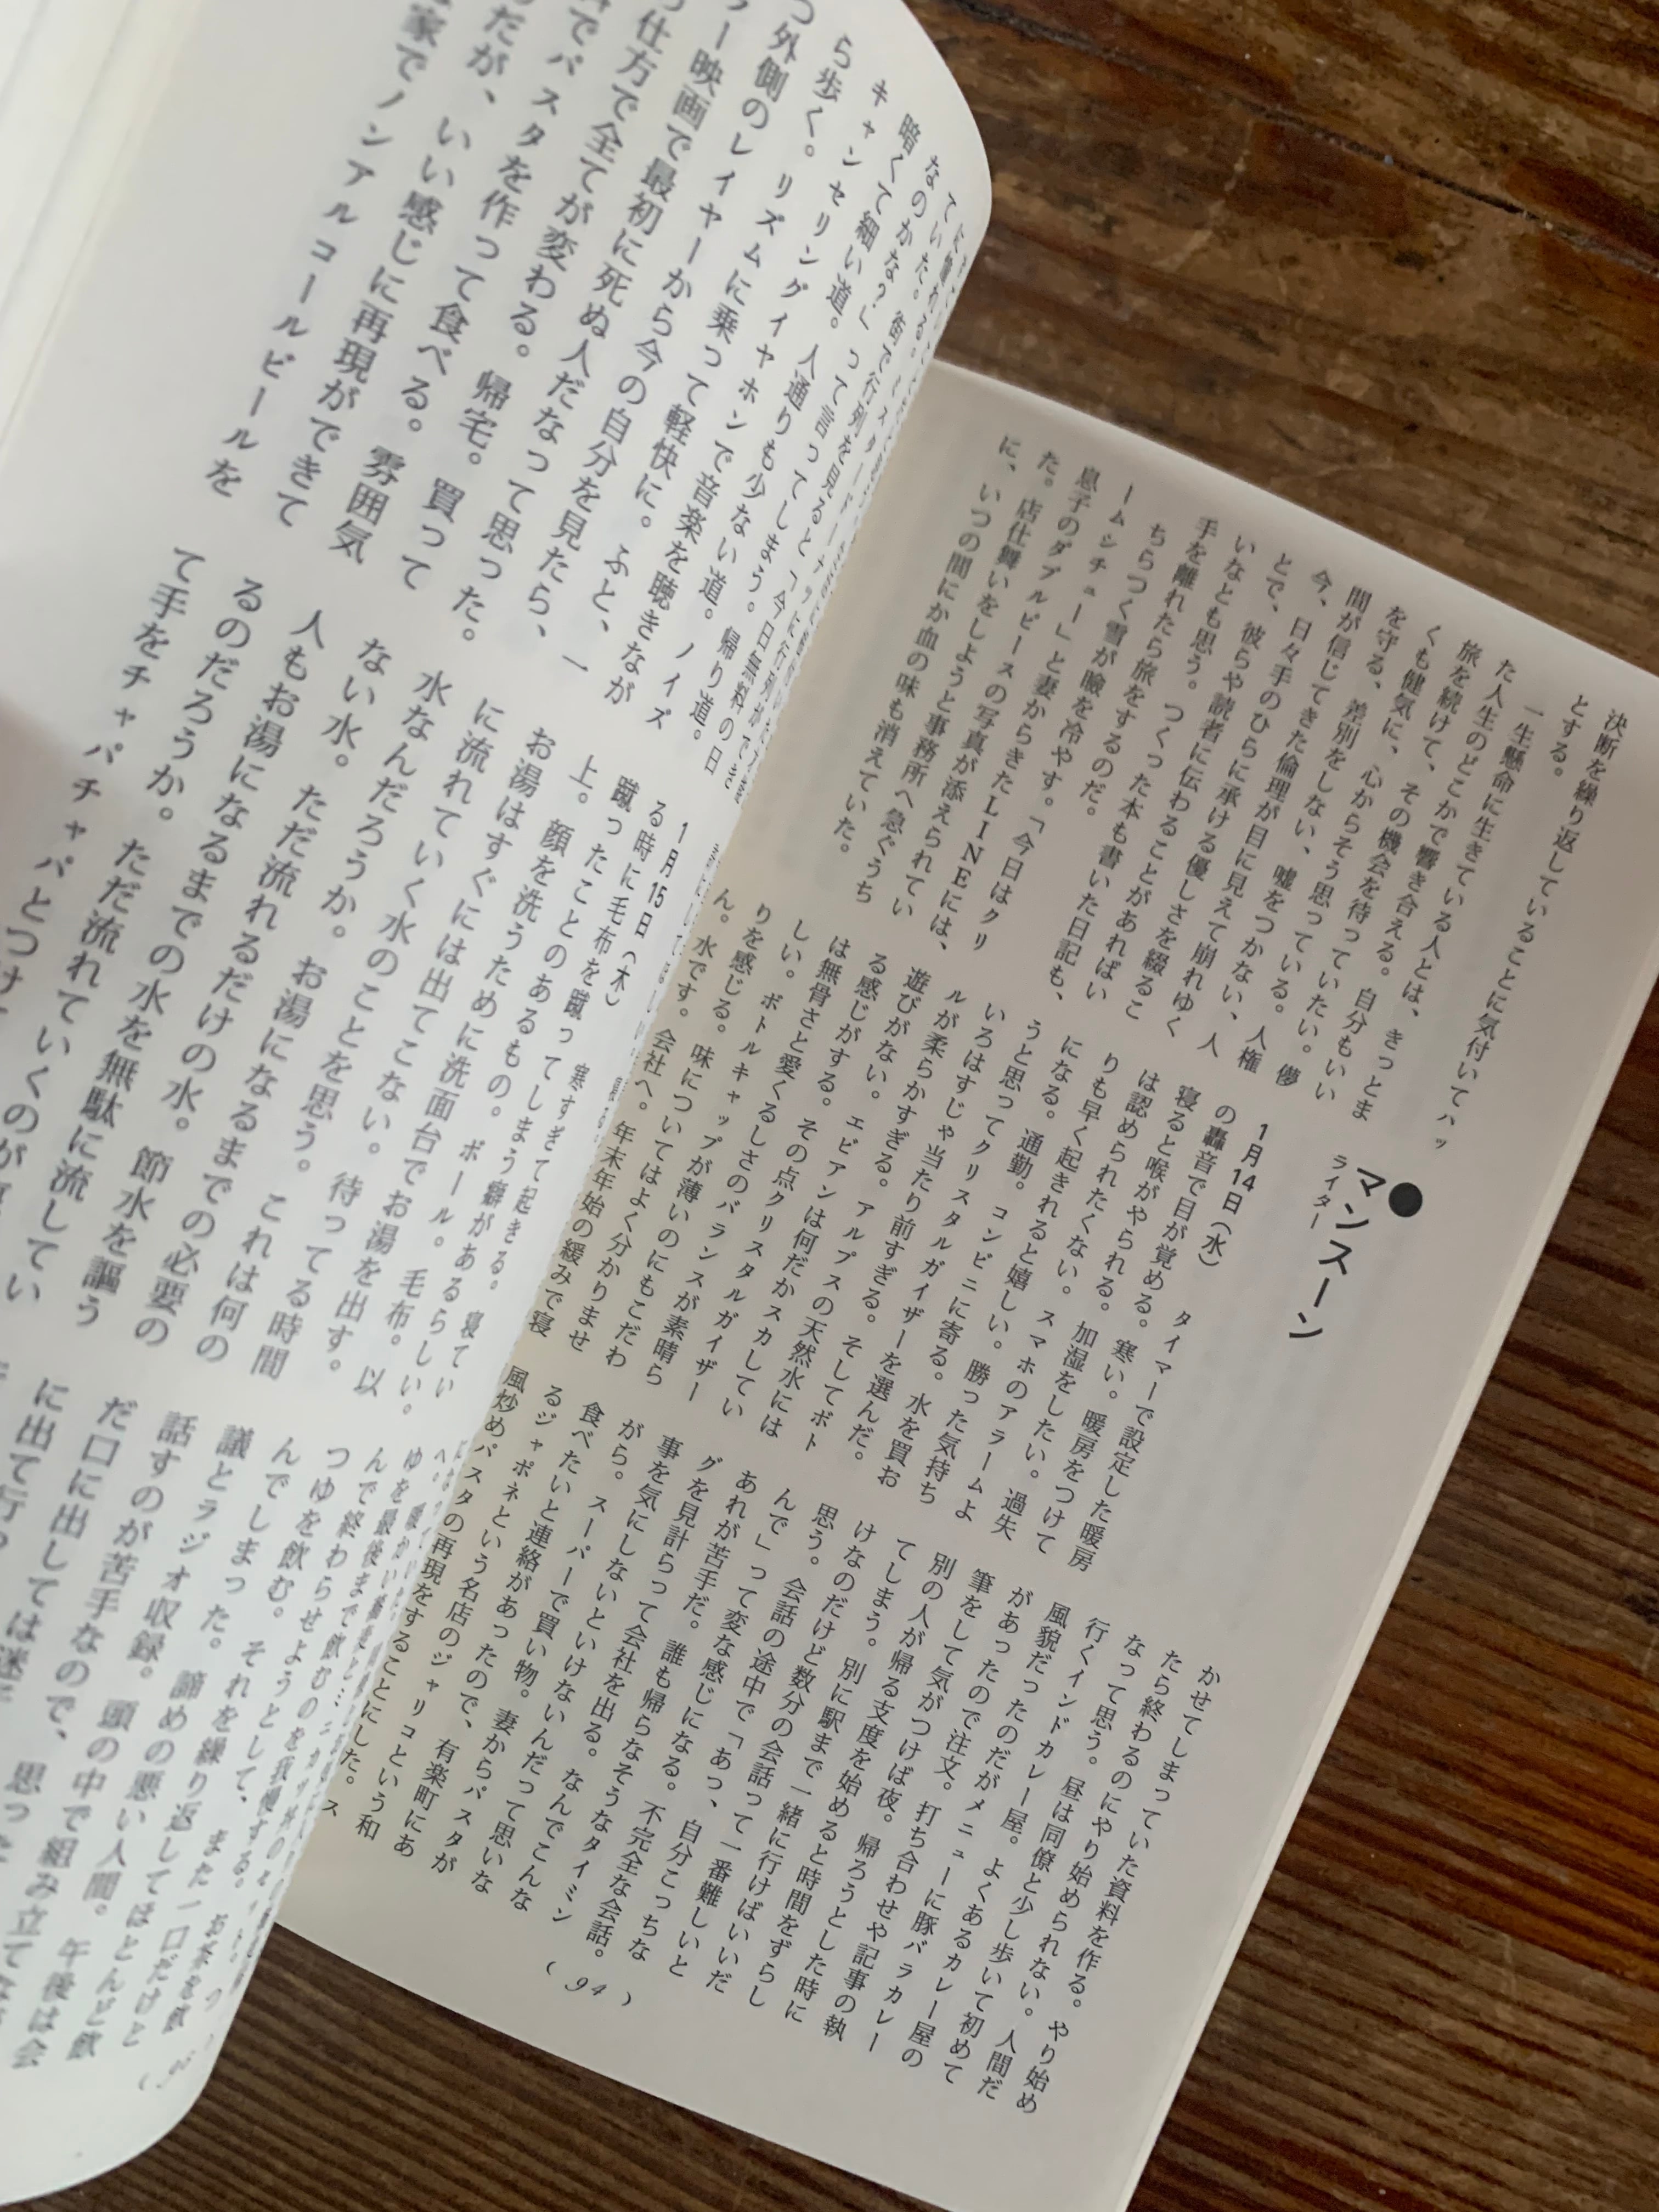 決断を繰り返していることに気付いてハッ
とする。
一生懸命に生きている人とは、きっとま
た人生のどこかで響き合える。自分もいい
旅を続けて、その機会を待っていたい。儚
くも健気に、心からそう思っている。人権
を守る、差別をしない、嘘をつかない、人
間が信じてきた倫理が目に見えて崩れゆく
今、日々手のひらに承ける優しさを綴るこ
とで、彼らや読者に伝わることがあればい
いなとも思う。つくった本も書いた日記も、
手を離れたら旅をするのだ。
ちらつく雪が瞼を冷やす。「今日はクリ
ームシチュー」と妻からきたLINEには、
息子のダブルピースの写真が添えられてい
た。店仕舞いをしようと事務所へ急ぐうち
に、いつの間にか血の味も消えていた。
●マンスーン
ライター
1月14日（水） タイマーで設定した暖房
の轟音で目が覚める。寒い。暖房をつけて
寝ると喉がやられる。加湿をしたい。過失
は認められたくない。スマホのアラームよ
りも早く起きれると嬉しい。勝った気持ち
になる。通勤。コンビニに寄る。水を買お
うと思ってクリスタルガイザーを選んだ。
いろはすじゃ当たり前すぎる。そしてボト
ルが柔らかすぎる。アルプスの天然水には
遊びがない。エビアンは何だかスカしてい
る感じがする。その点クリスタルガイザー
は無骨さと愛くるしさのバランスが素晴ら
しい。ボトルキャップが薄いのにもこだわ
りを感じる。味についてはよく分かりませ
ん。水です。会社へ。年末年始の緩みで寝
かせてしまっていた資料を作る。やり始め
たら終わるのにやり始められない。人間だ
なって思う。昼は同僚と少し歩いて初めて
行くインドカレー屋。よくあるカレー屋の
風貌だったのだがメニューに豚バラカレー
があったので注文。打ち合わせや記事の執
筆をして気がつけば夜。帰ろうとした時に
別の人が帰る支度を始めると時間をずらし
てしまう。別に駅まで一緒に行けばいいだ
けなのだけど数分の会話って一番難しいと
思う。会話の途中で「あっ、自分こっちな
んで」って変な感じになる。不完全な会話。
あれが苦手だ。誰も帰らなそうなタイミン
グを見計らって会社を出る。なんでこんな
事を気にしないといけないんだって思いな
がら。スーパーで買い物。妻からパスタが
食べたいと連絡があったので、有楽町にあ
るジャポネという名店のジャリコという和
風炒めパスタの再現をすることにした。ス
（94）
なのかな？」って言ってしまう。帰り道。
暗くて細い道。人通りも少ない道。ノイズ
キャンセリングイヤホンで音楽を聴きなが
ら歩く。リズムに乗って軽快に。ふと、一
つ外側のレイヤーから今の自分を見たら、
ラー映画で最初に死ぬ人だなって思った。
仕方で全てが変わる。帰宅。買って
でパスタを作って食べる。雰囲気
だが、いい感じに再現ができて
家でノンアルコールビールを
1月15日（木） 寒すぎて起きる。寝てい
る時に毛布を蹴ってしまう癖があるらしい。
蹴ったことのあるもの。ボール。毛布。以
上。顔を洗うために洗面台でお湯を出す。
お湯はすぐには出てこない。待ってる時間
に流れていく水のことを思う。これは何の
水なんだろうか。お湯になるまでの必要の
ない水。ただ流れるだけの水。節水を謳う
人もお湯になるまでの水を無駄に流してい
るのだろうか。ただ流れていくのが
て手をチャパチャパとつけ
つゆを飲む。それを繰り返してほとんど飲
んでしまった。諦めの悪い人間。午後は会
議とラジオ収録。頭の中で組み立て
話すのが苦手なので、思った
だ口に出しては迷
に出て行